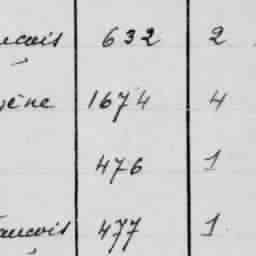 ncais 632 2
gène 1674 4
476 1
ancois 477 1